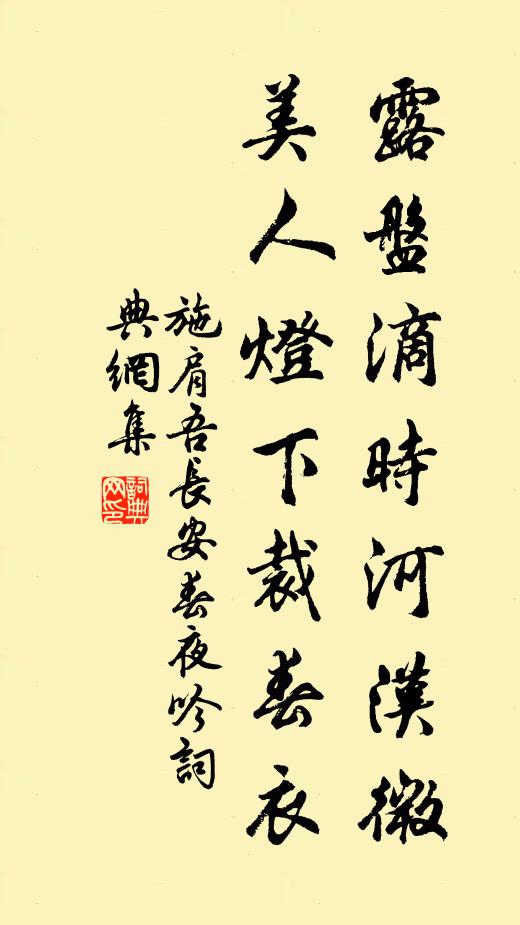 露盤滴時河漢微
美人燈下裁春衣
施肩吾長安春夜吟詞
典網集
詞典
网印